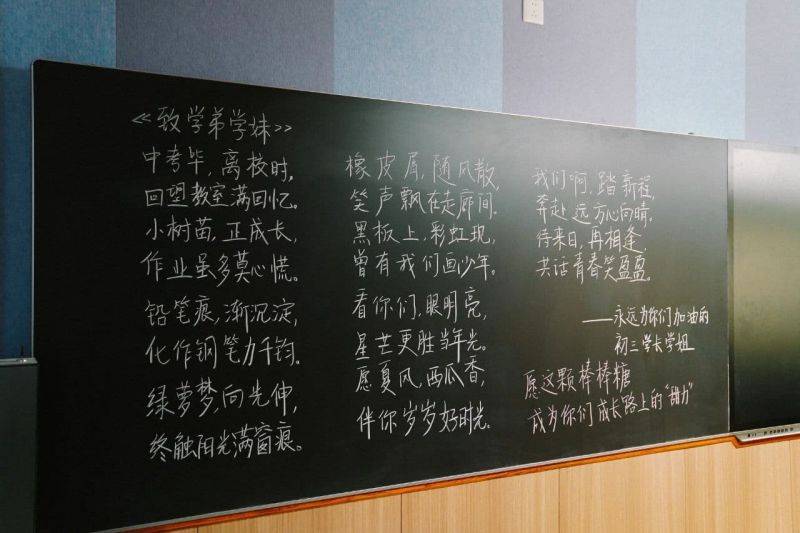 《致学弟学妹》
中考毕，离校时，
回望教室满回忆。
小树苗，正成长，
作业虽多莫心慌。
铅笔痕，渐沉淀，
化作钢笔力千钧。
绿萝梦，向光伸，
终触阳光满窗痕。
橡皮屑，随风散，
笑声飘在走廊间。
黑板上，彩虹现，
曾有我们画少年。
看你们，眼明亮，
星芒更胜当年光。
愿夏风，西瓜香，
伴你岁岁好时光。
我们啊，踏新程，
奔赴远方心向晴。
待来日，再相逢，
共话青春笑盈盈。
——永远为你们加油的
初三学长学姐
愿这颗棒棒糖
成为你们成长路上的“甜力”